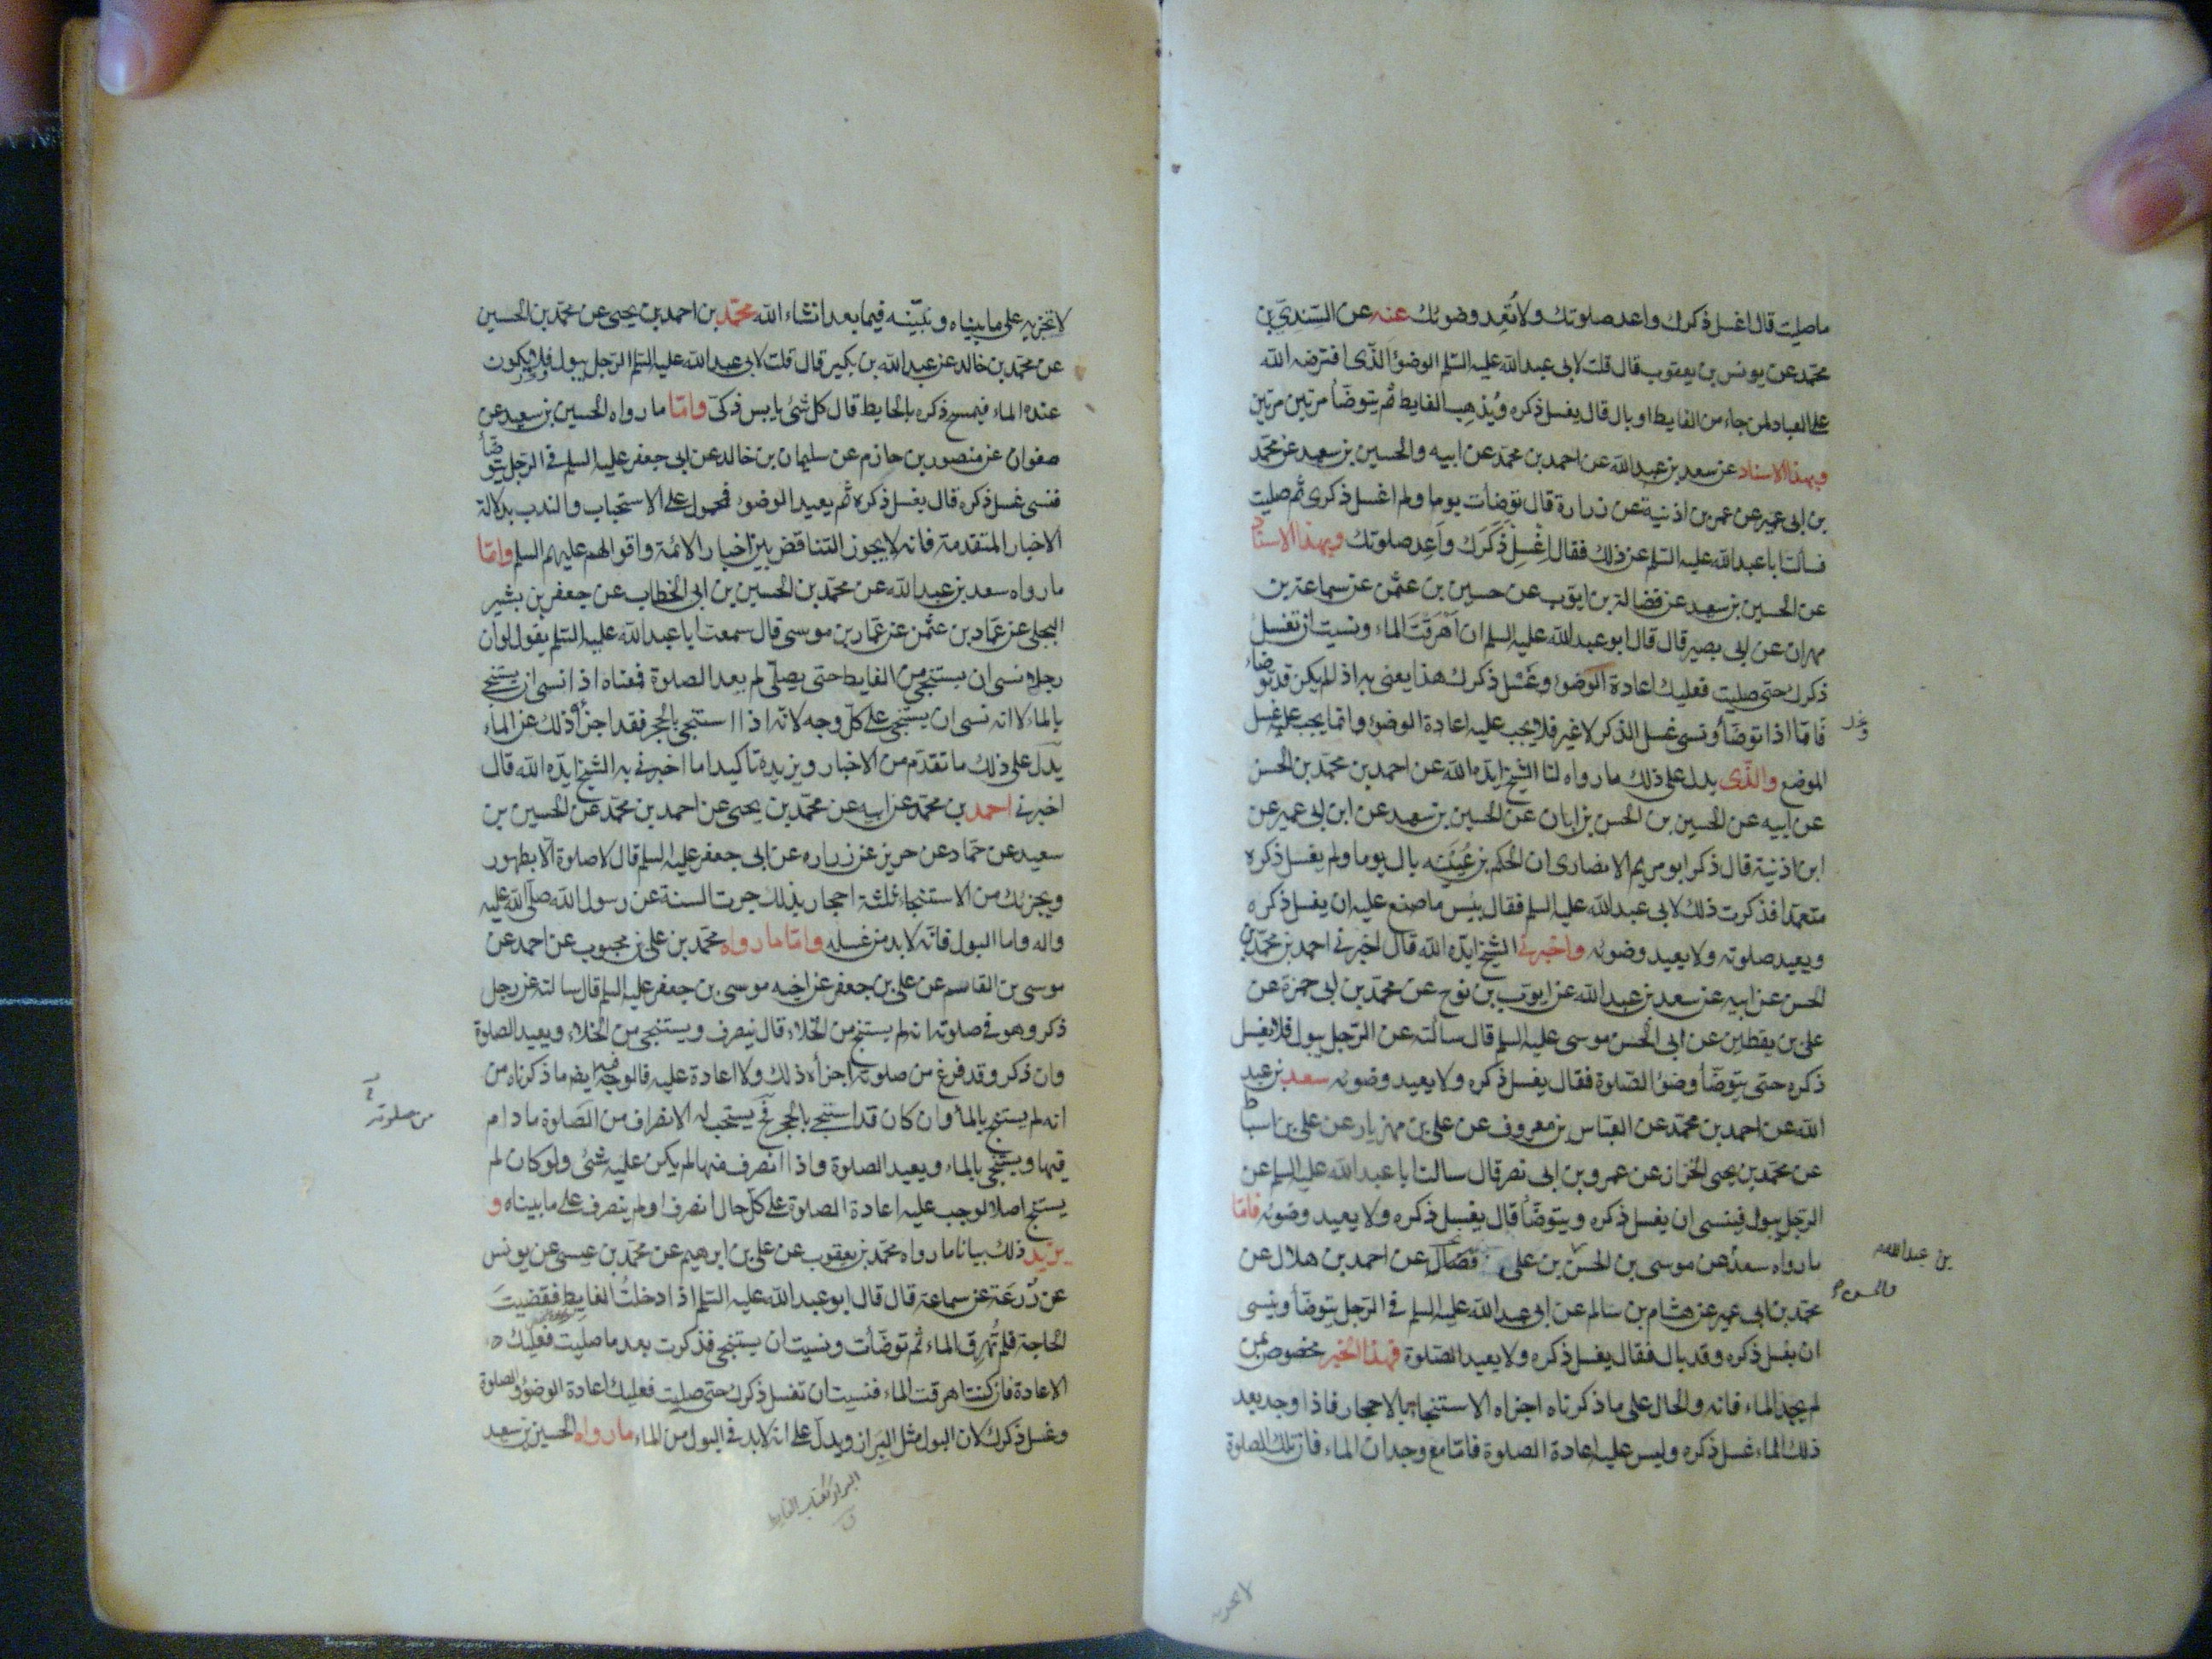 ما صليت قال اغسل ذكرك واعد صلوتك ولا تُعِد وضوئك عنه عن السّندِىّ بن
محمّد عن يونس بن يعقوب قال قلت لابى عبد الله عليه السّلم الوضوُ الّذى افترضه الله
على العباد لمن جاء من الغايط او بال قال يغسل ذكره ويُذهِب الغايط ثم يتوضّأ مرتين مرتين
وبهذا الاسناد عن سعد بن عبد الله عن احمد بن محمّد عن ابيه والحسين بن سعيد عن محمّد
بن ابى عمير عن عمر بن اذنية عن زرارة قال توضأت يوما ولم اغسل ذكرى ثم صليت
فسألت ابا عبد الله عليه السّلم عن ذلك فقال اغْسِل ذَكَرَك وأعِد صلوتك وبهذا الاسناد
عن الحسين بن سعيد عن فضالة بن ايوّب عن حسين بن عثمن عن سماعة بن
مهران عن ابى بصير قال قال ابو عبد الله عليه السلم ان اَهْرَقتَ الماء ونسيت ان تغسل
ذكرك حتى صليت فعليك اعادة الوضوُ وغسْل ذكرك هذا يعنى به اذ لم يكن قد توضاء
فَامّا اذا توضّأ ونسى غسل الذكر لا غير فلا يجب عليه اعادة الوضوُ وانما يجب عليه غسل
الموضع والّذى يدل على ذلك ما رواه لنا الشّيخ ايّده الله عن احمد بن محمّد بن الحسن
عن ابيه عن الحسين بن الحسن بن ابان عن الحسين بن سعيد عن ابن ابى عمير عن
ابن اذنية قال ذكر ابو مريم الانصارى ان الحكم بن عُيَيْنه بال يوما ولم يغسل ذكره
متعمّدا فذكرت ذلك لابى عبد الله عليه السلم فقال بئس ما صنع عليه ان يغسل ذكره
ويعيد صلوته ولا يعيد وضوئه واخبرنى الشّيخ ايّده الله قال اخبرنى احمد بن محمّد بن
الحسن عن ابيه عن سعد بن عبد الله عن ايوّب بن نوح عن محمّد بن ابى حمزة عن
على بن يقطين عن ابى الحسن موسى عليه السلم قال سالته عن الرّجل يبول فلا يغسل
ذكره حتى يتوضّأ وضوُ الصّلوة فقال يغسل ذكره ولا يعيد وضوئه سعد بن عبد
الله عن احمد بن محمّد عن العبّاس بن معروف عن على بن مهزيار عن على بن اسباط
عن محمّد بن يحيى الخزاز عن عمرو بن ابى نصر قال سالت ابا عبد الله عليه السلم عن
الرّجل يبول فينسى ان يغسل ذكره ويتوضّأ قال يغسل ذكره ولا يعيد وضوئه فامّا
ما رواه سعدُ عن موسى بن الحسن بن على بن فضّال عن احمد بن هلال عن
بن عبد الله
والحسن
محمّد بن ابى عمير عن هشام بن سالم عن ابى عبد الله عليه السلم فى الرّجل يتوضّأ وينسى
ان يغسل ذكره وقد بال فقال يغسل ذكره ولا يعيد الصّلوة فهذا الخبر مخصوص بمن
لم يجد الماء فانه والحال على ما ذكرناه اجزاه الاستنجاء بالاحجار فاذا وجد بعد
ذلك الماء غسل ذكره وليس عليه اعادة الصلوة فامّا مع وجدان الماء فان تلك الصلوة
لا تجزيه
لا تجزيه على ما بيناه ونبيّنه فيما بعد انشاء الله محمّد بن احمد بن يحيى عن محمّد بن الحسين
عن محمّد بن خالد عن عبد الله بن بكير قال قلت لابى عبد الله عليه السّلم الرّجل يبول فلا يكون
عنده الماء فيمسح ذكره بالحايط قال كل شئُ يابس ذكىّ وامّا ما رواه الحسين بن سعيد عن
صفوان عن منصور بن حازم عن سليمان بن خالد عن ابى جعفر عليه السلم فى الرّجل يتوضّأ
فنسى غسل ذكره قال يغسل ذكره ثم يعيد الوضوُ فمحمول على الاستحباب والندب بدلالة
الاخبار المتقدمة فانه لا يجوز التناقض بين اخبار الائمة واقوالهم عليهم السلم وامّا
ما رواه سعد بن عبد الله عن محمّد بن الحسين بن ابى الخطاب عن جعفر بن بشير
البجلى عن حمّاد بن عثمن عن عمّار بن موسى قال سمعت ابا عبد الله عليه السّلم يقول لو ان
رجلا نسى ان يستنجى من الغايط حتى يصلّى لم يعد الصلوة فمعناه اذا نسى ان يستنجى
بالماء لا انه نسى ان يستنجى على كلّ وجه لانّه اذا استنجى بالحجر فقد اجزأ ذلك عن الماء
يدلّ على ذلك ما تقدّم من الاخبار ويزيده تاكيدا ما اخبرنى به الشّيخ ايدّه الله قال
اخبرنى احمد بن محمّد عن ابيه عن محمّد بن يحيى عن احمد بن محمّد عن الحسين بن
سعيد عن حمّاد عن حريز عن زراره عن ابى جعفر عليه السلم قال لا صلوة الّا بطهور
ويجزيك من الاستنجاء ثلثة احجار بذلك جرت السنة عن رسول الله صلّى الله عليه
واله واما البول فانّه لا بد من غسله وامّا ما رواه محمّد بن على بن محبوب عن احمد عن
موسى بن القاسم عن على بن جعفر عن اخيه موسى بن جعفر عليه السلم قال سالته عن رجل
ذكر وهو فى صلوته انه لم يستنج من الخلاء قال ينصرف ويستنجى من الخلاء ويعيد الصلوة
وان ذكر وقد فرغ من صلوته اجزأه ذلك ولا اعادة عليه فالوجه فيه ايضا ما ذكرناه من
انه لم يستنج بالماُ وان كان قد استنجى بالحجر فحَ يستحب له الانصراف من الصّلوة ما دام
من صلوته
فيها ويستنجى بالماء ويعيد الصلوة واذا انصرف منها لم يكن عليه شئُ ولو كان لم
يستنج اصلا لوجب عليه اعادة الصلوة على كلّ حال انصرف او لم ينصرف على ما بيناه و
يزيد ذلك بيانا ما رواه محمّد بن يعقوب عن على بن ابرهيم عن محمّد بن عيسى عن يونس
عن زُرْعَة عن سماعة قال قال ابو عبد الله عليه السّلم اذا دخلتُ الغايط فقضيتَ
الحاجة فلم تُهرِق الماء ثم توضّأت ونسيت ان يستنجى فذكرت بعد ما صليت فعليك
الاعادة فان كنت اهرقت الماء فنسيت ان تغسل ذكرك حتى صليت فعليك اعادة الوضوُ والصلوة
وغسل ذكرك لان البول مثل البَرَاز ويدلّ على انه لابد فى البول من الماء ما رواه الحسين بن سعيد